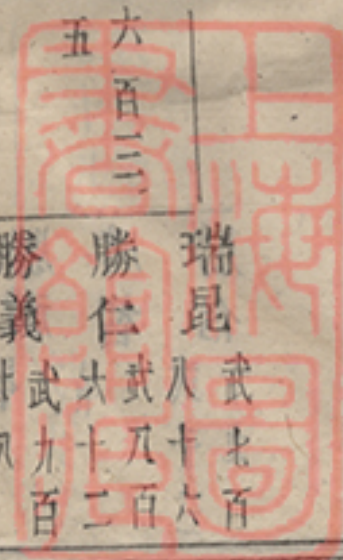 六百三
五
瑞昆
武七百
八十六
勝仁
武八百
六十二
勝義
武九百
上海圖
書館藏